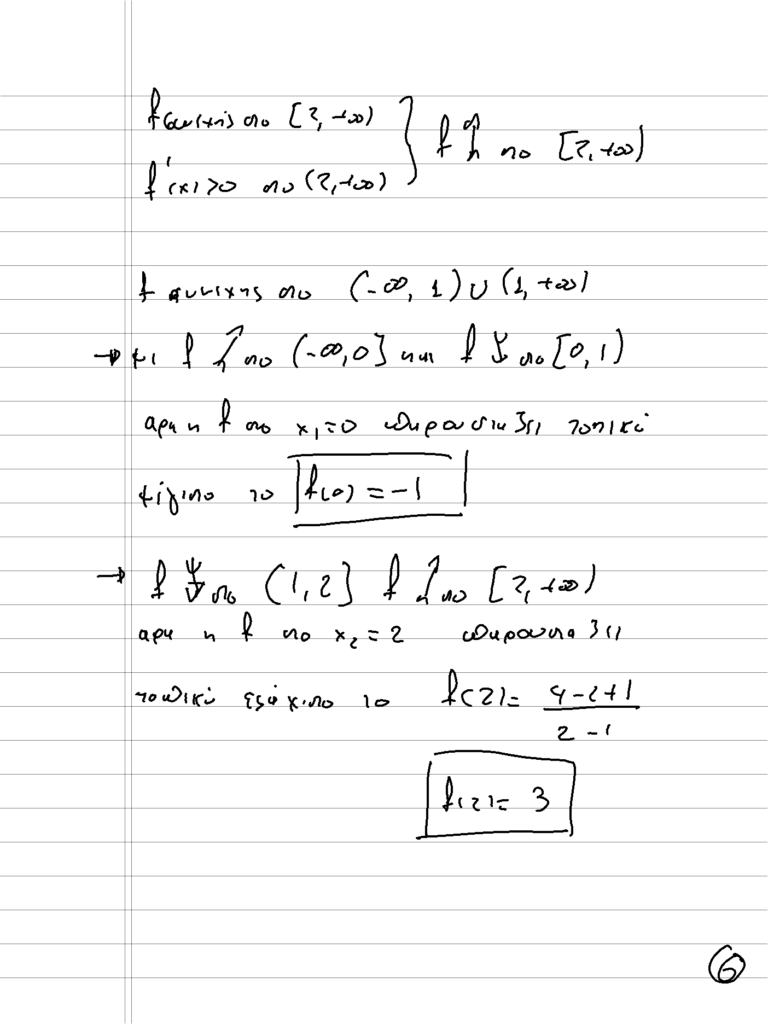 f συνεχής στο [2, +∞) } f ↑ στο [2, +∞)
f'(x)>0 στο (2, +∞)
f συνεχης στο (-∞, 1) ∪ (1, +∞)
→ κι f ↑ στο (-∞, 0] και f ↓ στο [0, 1)
αρα η f στο x₁=0 παρουσιαζει τοπικό
μέγιστο το f(0) = -1
→ f ↓ στο (1, 2] f ↑ στο [2, +∞)
αρα η f στο x₂ = 2 παρουσιαζει
τοπικό ελάχιστο το f(2) = \frac{4-2+1}{2-1}
f(2) = 3
6